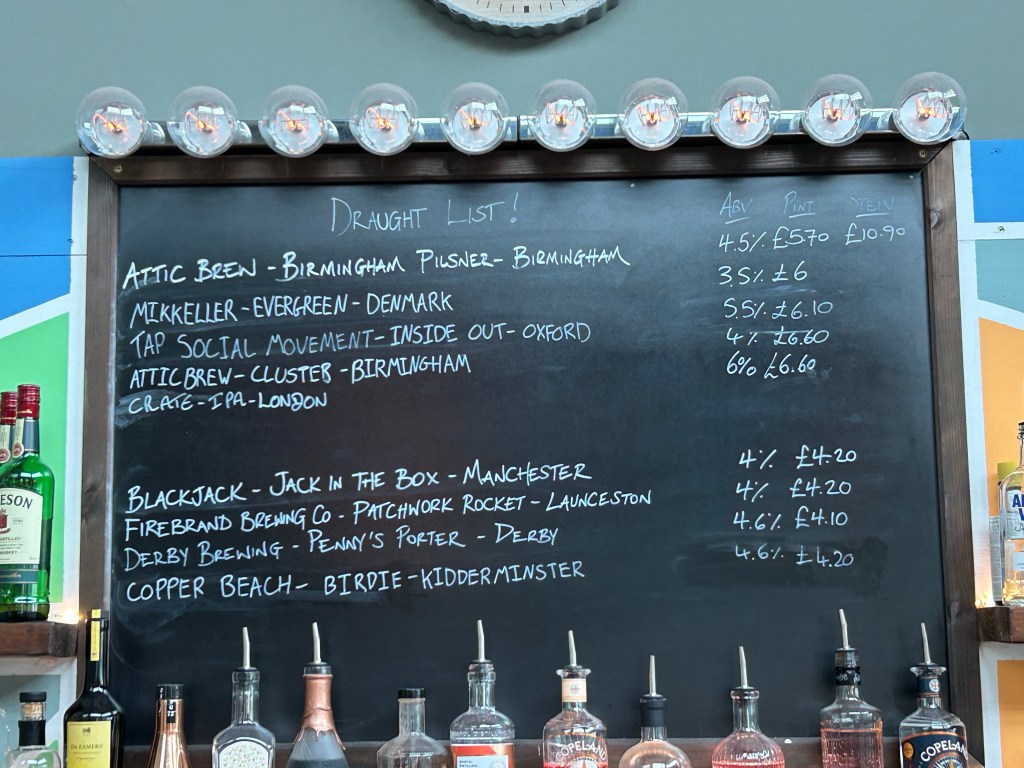 DRAUGHT LIST! ABV PINT STEIN
ATTIC BREW - BIRMINGHAM PILSNER - BIRMINGHAM 4.5% £5.70 £10.90
MIKKELLER - EVERGREEN - DENMARK 3.5% £6
TAP SOCIAL MOVEMENT - INSIDE OUT - OXFORD 5.5% £6.10
ATTIC BREW - CLUSTER - BIRMINGHAM 4% £6.60
CRATE - IPA - LONDON 6% £6.60
BLACKJACK - JACK IN THE BOX - MANCHESTER 4% £4.20
FIREBRAND BREWING CO - PATCHWORK ROCKET - LAUNCESTON 4% £4.20
DERBY BREWING - PENNY'S PORTER - DERBY 4.6% £4.10
COPPER BEACH - BIRDIE - KIDDERMINSTER 4.6% £4.20
ESON
COPELAN
COPELAN